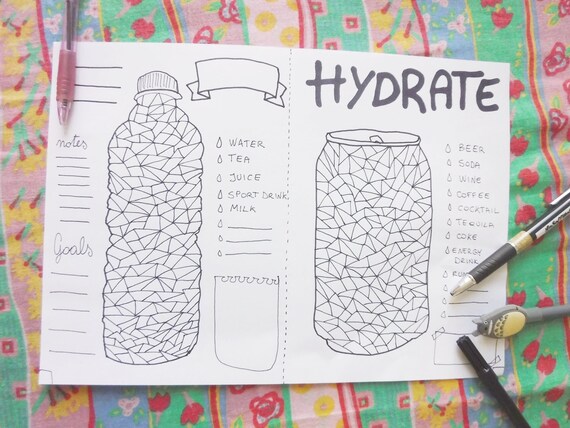 notes
Goals
WATER
TEA
JUICE
SPORT DRINK
MILK
HYDRATE
BEER
SODA
WINE
COFFEE
COCKTAIL
TEQUILA
COKE
ENERGY
DRINK